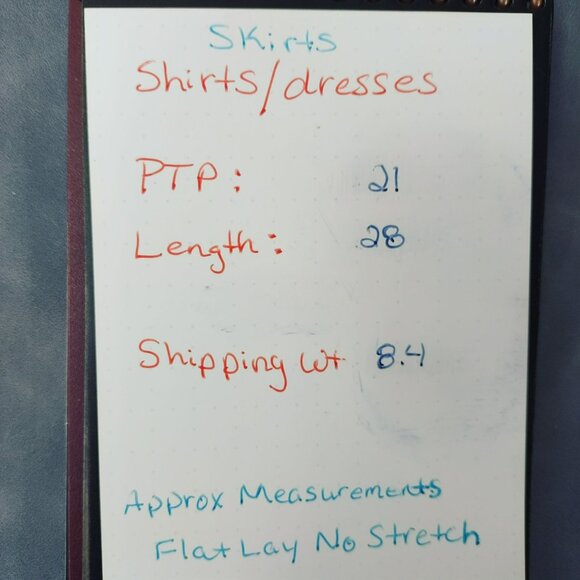 Skirts
Shirts/dresses
PTP: 21
Length: 28
Shipping wt 8.4
Approx Measurements
Flat Lay No Stretch